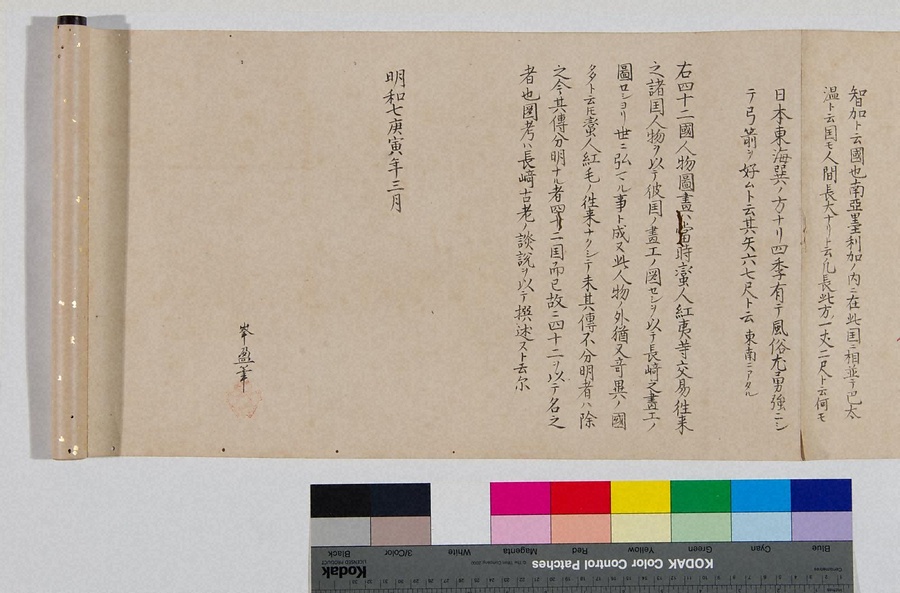 智加ト云國也南亞墨利加ノ内ニ在此国ニ相並テ巴太
温ト云国モ人間長大ナリト云凡長此方一丈二尺ト云何モ
日本東海巽ノ方ナリ四季有テ風俗尤勇強ニシ
テ弓箭ヲ好ムト云其矢六七尺ト云 東南ニアタル
右四十二國人物圖畫ハ當時蛮人紅夷等交易往来
之諸国人物ヲ以テ彼国ノ畫工ノ圖セシヲ以テ長﨑之畫工ノ
圖セショリ世ニ弘マル事ト成又此人物ノ外猶又竒異ノ國
多ト云𪜈蛮人紅毛ノ往来ナクシテ未其傳不分明者ハ除
之今其傳分明ナル者四十二国而已故ニ四十二ヲ以テ名之
者也圖考ハ長﨑古老ノ談説ヲ以テ撰述スト云尔
明和七庚寅年三月
峯盈筆
KODAK Color Control Patches
Blue
Cyan
Green
Yellow
Red
Magenta
White
3/Color
Black
Kodak
LICENSED PRODUCT